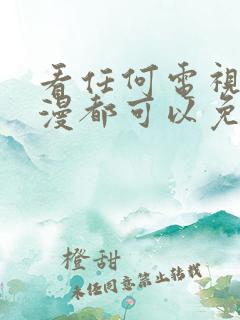 看任何電視
漫都可以免
橙甜
未任同意禁止转载